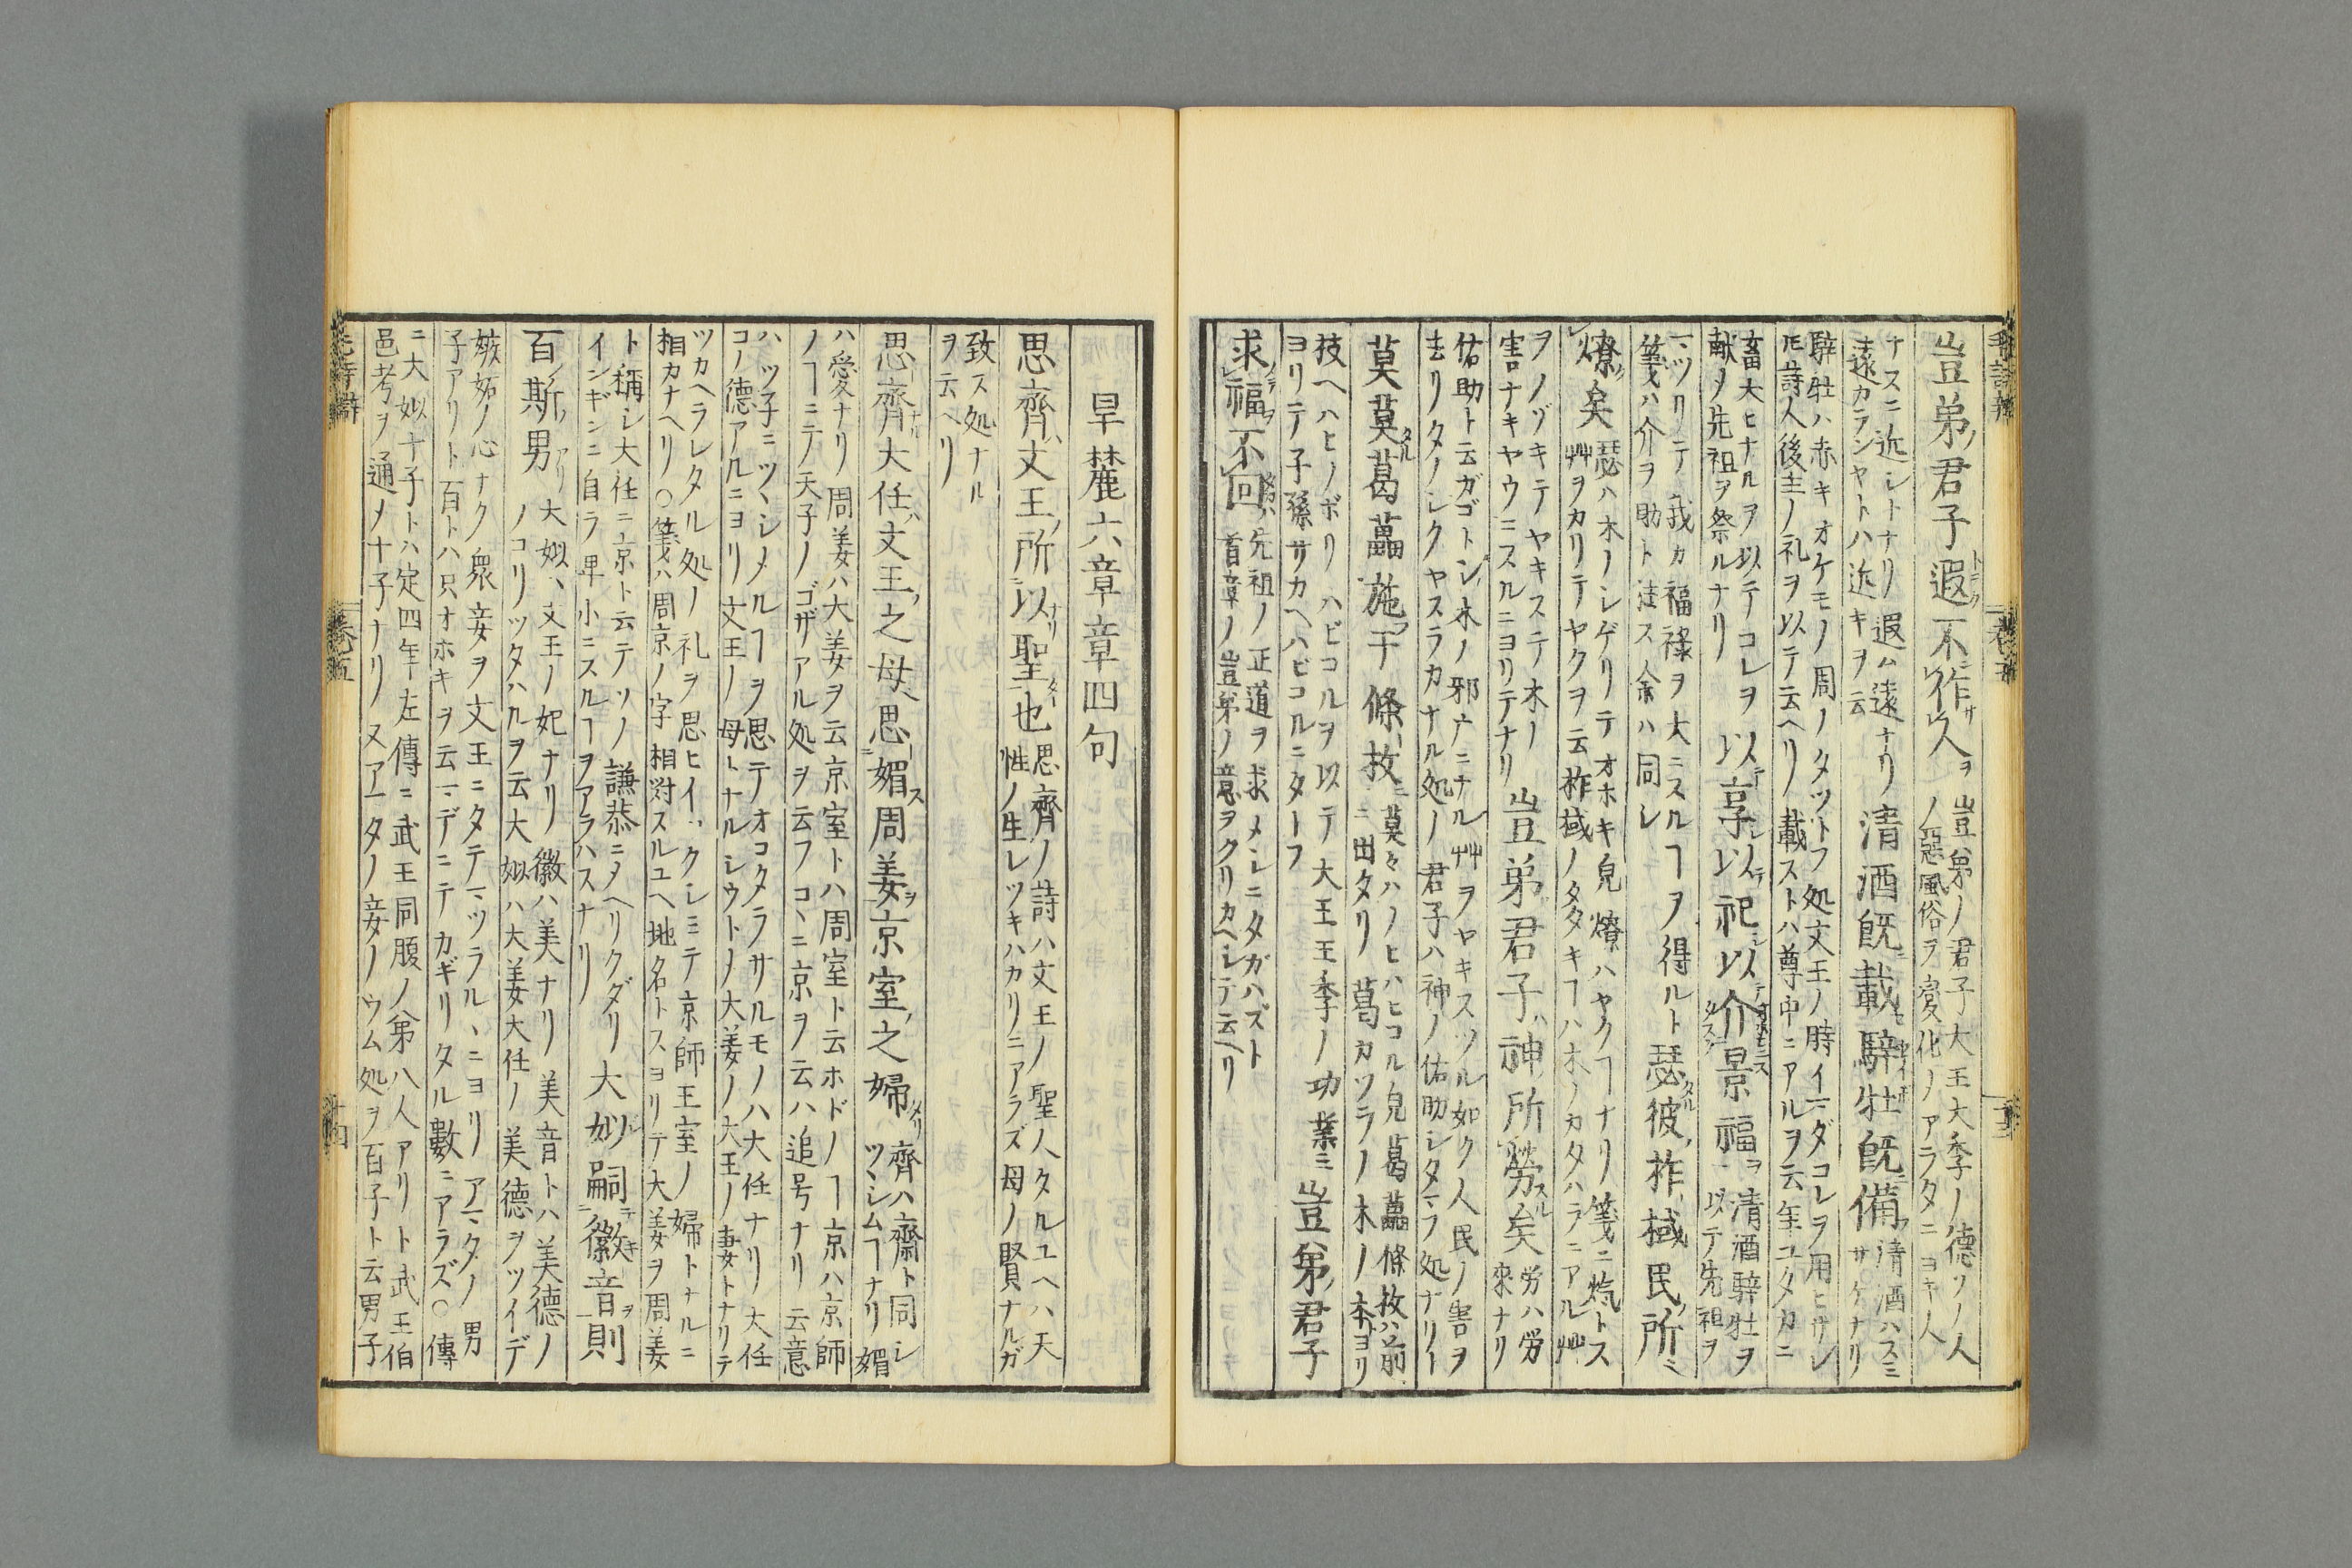 豈弟君子遐不作人
豈弟ノ君子大王大季ノ德ソノ人
ノ惡風俗ヲ變化ノアラタニヨキ人
ナスニ近シトナリ遐ハ遠ナリ
遠カランヤトハ近キヲ云
清酒既載騂牡既備
清酒ハスミ
サケナリ
騂牡ハ赤キオケモノ周ノタツトフ処文王ノ時イマダコレヲ用ヒサレ
𪜈詩人後主ノ礼ヲ以テ云ヘリ載ストハ尊中ニアルヲ云年ユタカニ
畜大ヒナルヲ以テコレヲ
献メ先祖ヲ祭ルナリ
以享以祀以介景福
清酒騂牡ヲ
以テ先祖ヲ
マツリテ我カ福禄ヲ大ニスルヿヲ得ルト
箋ハ介ヲ助ト注ス余ハ同シ
瑟彼柞棫民所
燎矣
瑟ハ木ノシゲリテオホキ皃燎ハヤクヿナリ箋ニ𤍠トス
艸ヲカリテヤクヲ云柞棫ノタヽキヿハ木ノカタハラニアル艸
ヲノゾキテヤキステ木ノ
害ナキヤウニスルニヨリテナリ
豈弟君子神所勞矣
労ハ労
來ナリ
佑助ト云ガゴトシ木ノ邪广ニナル艸ヲヤキスツル如ク人民ノ害ヲ
去リタノシクヤスラカナル処ノ君子ハ神ノ佑助シタマフ処ナリ
莫莫葛藟施于條枚
莫々ハノヒハヒコル皃葛藟條枚ハ前
ニ出タリ葛カツラノ木ノ本ヨリ
技ヘハヒノボリハビコルヲ以テ大王王季ノ功業ニ
ヨリテ子孫サカヘハビコルニタトフ
豈弟君子
求福不回
先祖ノ正道ヲ求メシニタガハズト
首章ノ豈弟ノ意ヲクリカヘシテ云ヘリ
旱麓六章章四句
思齊文王所以聖也
思齊ノ詩ハ文王ノ聖人タルユヘハ天
性ノ生レツキハカリニアラズ母ノ賢ナルガ
致ス処ナル
ヲ云ヘリ
思齊大任文王之母思媚周姜京室之婦
齊ハ齋ト同シ
ツヽシムヿナリ媚
ハ愛ナリ周姜ハ大姜ヲ云京室トハ周室ト云ホドノヿ京ハ京師
ノヿニテ天子ノゴザアル処ヲ云フコヽニ京ヲ云ハ追号ナリ云意
ハツ子ニツヽシメルヿヲ思テオコタラサルモノハ大任ナリ大任
コノ德アルニヨリ文王ノ母トナルシウトノ大姜ノ大王ノ妻トナリテ
ツカヘラレタル処ノ礼ヲ思ヒイツクシミテ京師王室ノ婦トナルニ
相カナヘリ○箋ハ周京ノ字相對スルユヘ地名トスヨリテ大姜ヲ周姜
ト稱シ大任ニ京ト云テソノ謙恭ニメヘリクダリ
インギンニ自ラ卑小ニスルヿヲアラハスナリ
大姒嗣徽音則
百斯男
大姒ハ文王ノ妃ナリ徽ハ美ナリ美音トハ美德ノ
ノコリツタハルヲ云大姒ハ大姜大任ノ美德ヲツイデ
嫉妬ノ心ナク衆妾ヲ文王ニタテマツラルヽニヨリアマタノ男
子アリト百トハ只オホキヲ云マデニテカギリタル數ニアラズ○傳
ニ大姒十子トハ定四年左傳ニ武王同腹ノ弟八人アリト武王伯
邑考ヲ通メ十子ナリ又アマタノ妾ノウム処ヲ百子ト云男子
卷五
十四